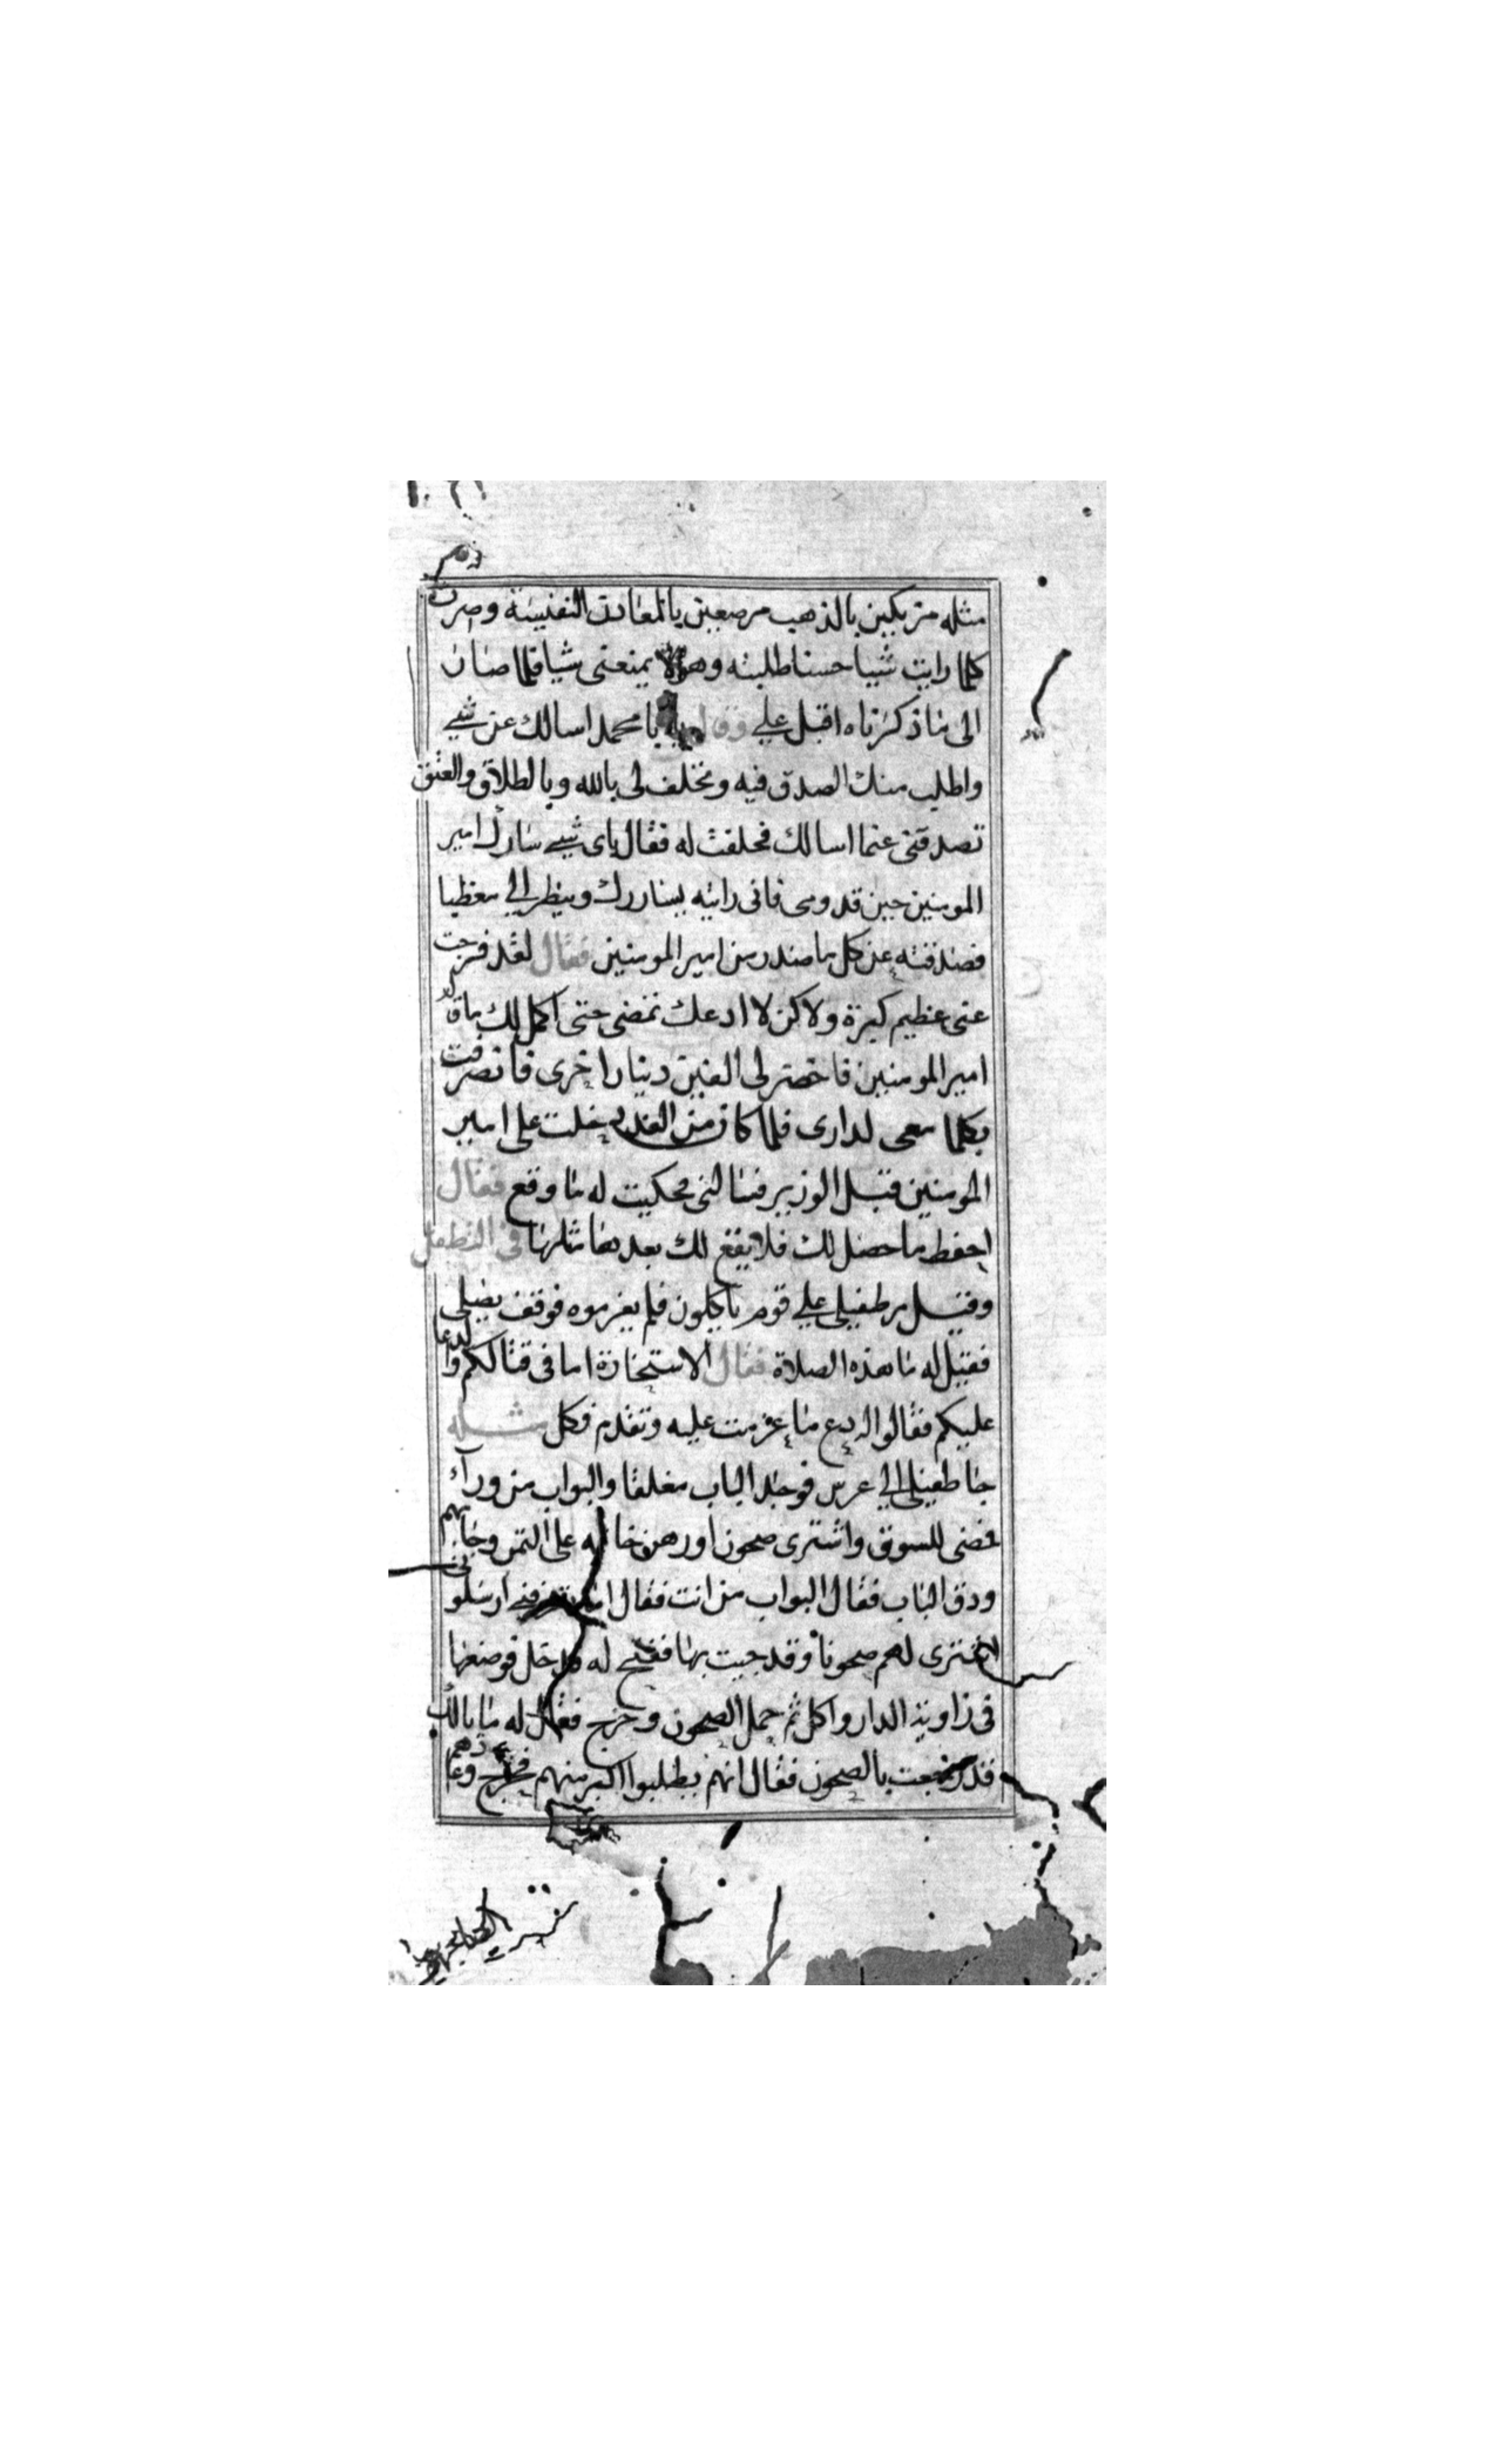 مثله متربكين بالذهب مرصعين بالمعادن النفيسة وصرت
كلما رايت شيا حسنا طلبته وهو لا يمنعنى شيا فلما صار
الى ما ذكرناه اقبل علي وقال يا محمد اسالك عن شي
واطلب منك الصدق فيه وتحلف لى بالله وبالطلاق والعتق
تصدقنى عنما اسالك فحلفت له فقال باى شي سارك امير
المومنين حين قدومى فانى رايته يسارك وينظر الي مغظيا
فصدقته عن كل ما صدر من امير المومنين فقال لقد فرجت
عنى عظيم كبرة ولاكن لا ادعك تمضى حتى اكمل لك
امير المومنين فاحضر لى الفين دينار اخرى فانصرفت
بكلما معى لدارى فلما كان من الغد دخلت على امير
المومنين قبل الوزير فسالنى فحكيت له ما وقع فقال
احفظ ما حصل لك فلا يقع لك بعدها مثلها فى التطفل
وقيل مر طفيلى علي قوم ياكلون فلم يعزموه فوقف يصلى
فقيل له ما هذه الصلاة فقال الاستخارة اما فى قتالكم والدعا
عليكم فقالوا له دع ما عزمت عليه وتقدم فكل مثله
جا طفيلى الي عرس فوجد الباب مغلقا والبواب من وراء
فمضى للسوق واشترى صحون او رهن خاتمه على الثمن وجا بهم
ودق الباب فقال البواب من انت فقال ارسلو
لاشترى لهم صحونا وقد جيت بها ففتح له فدخل فوضعها
فى زاوية الدار واكل ثم حمل الصحون وخرج فقال له ما بالك
قد رجعت بالصحون فقال انهم يطلبوا اكبر منهم فخرج